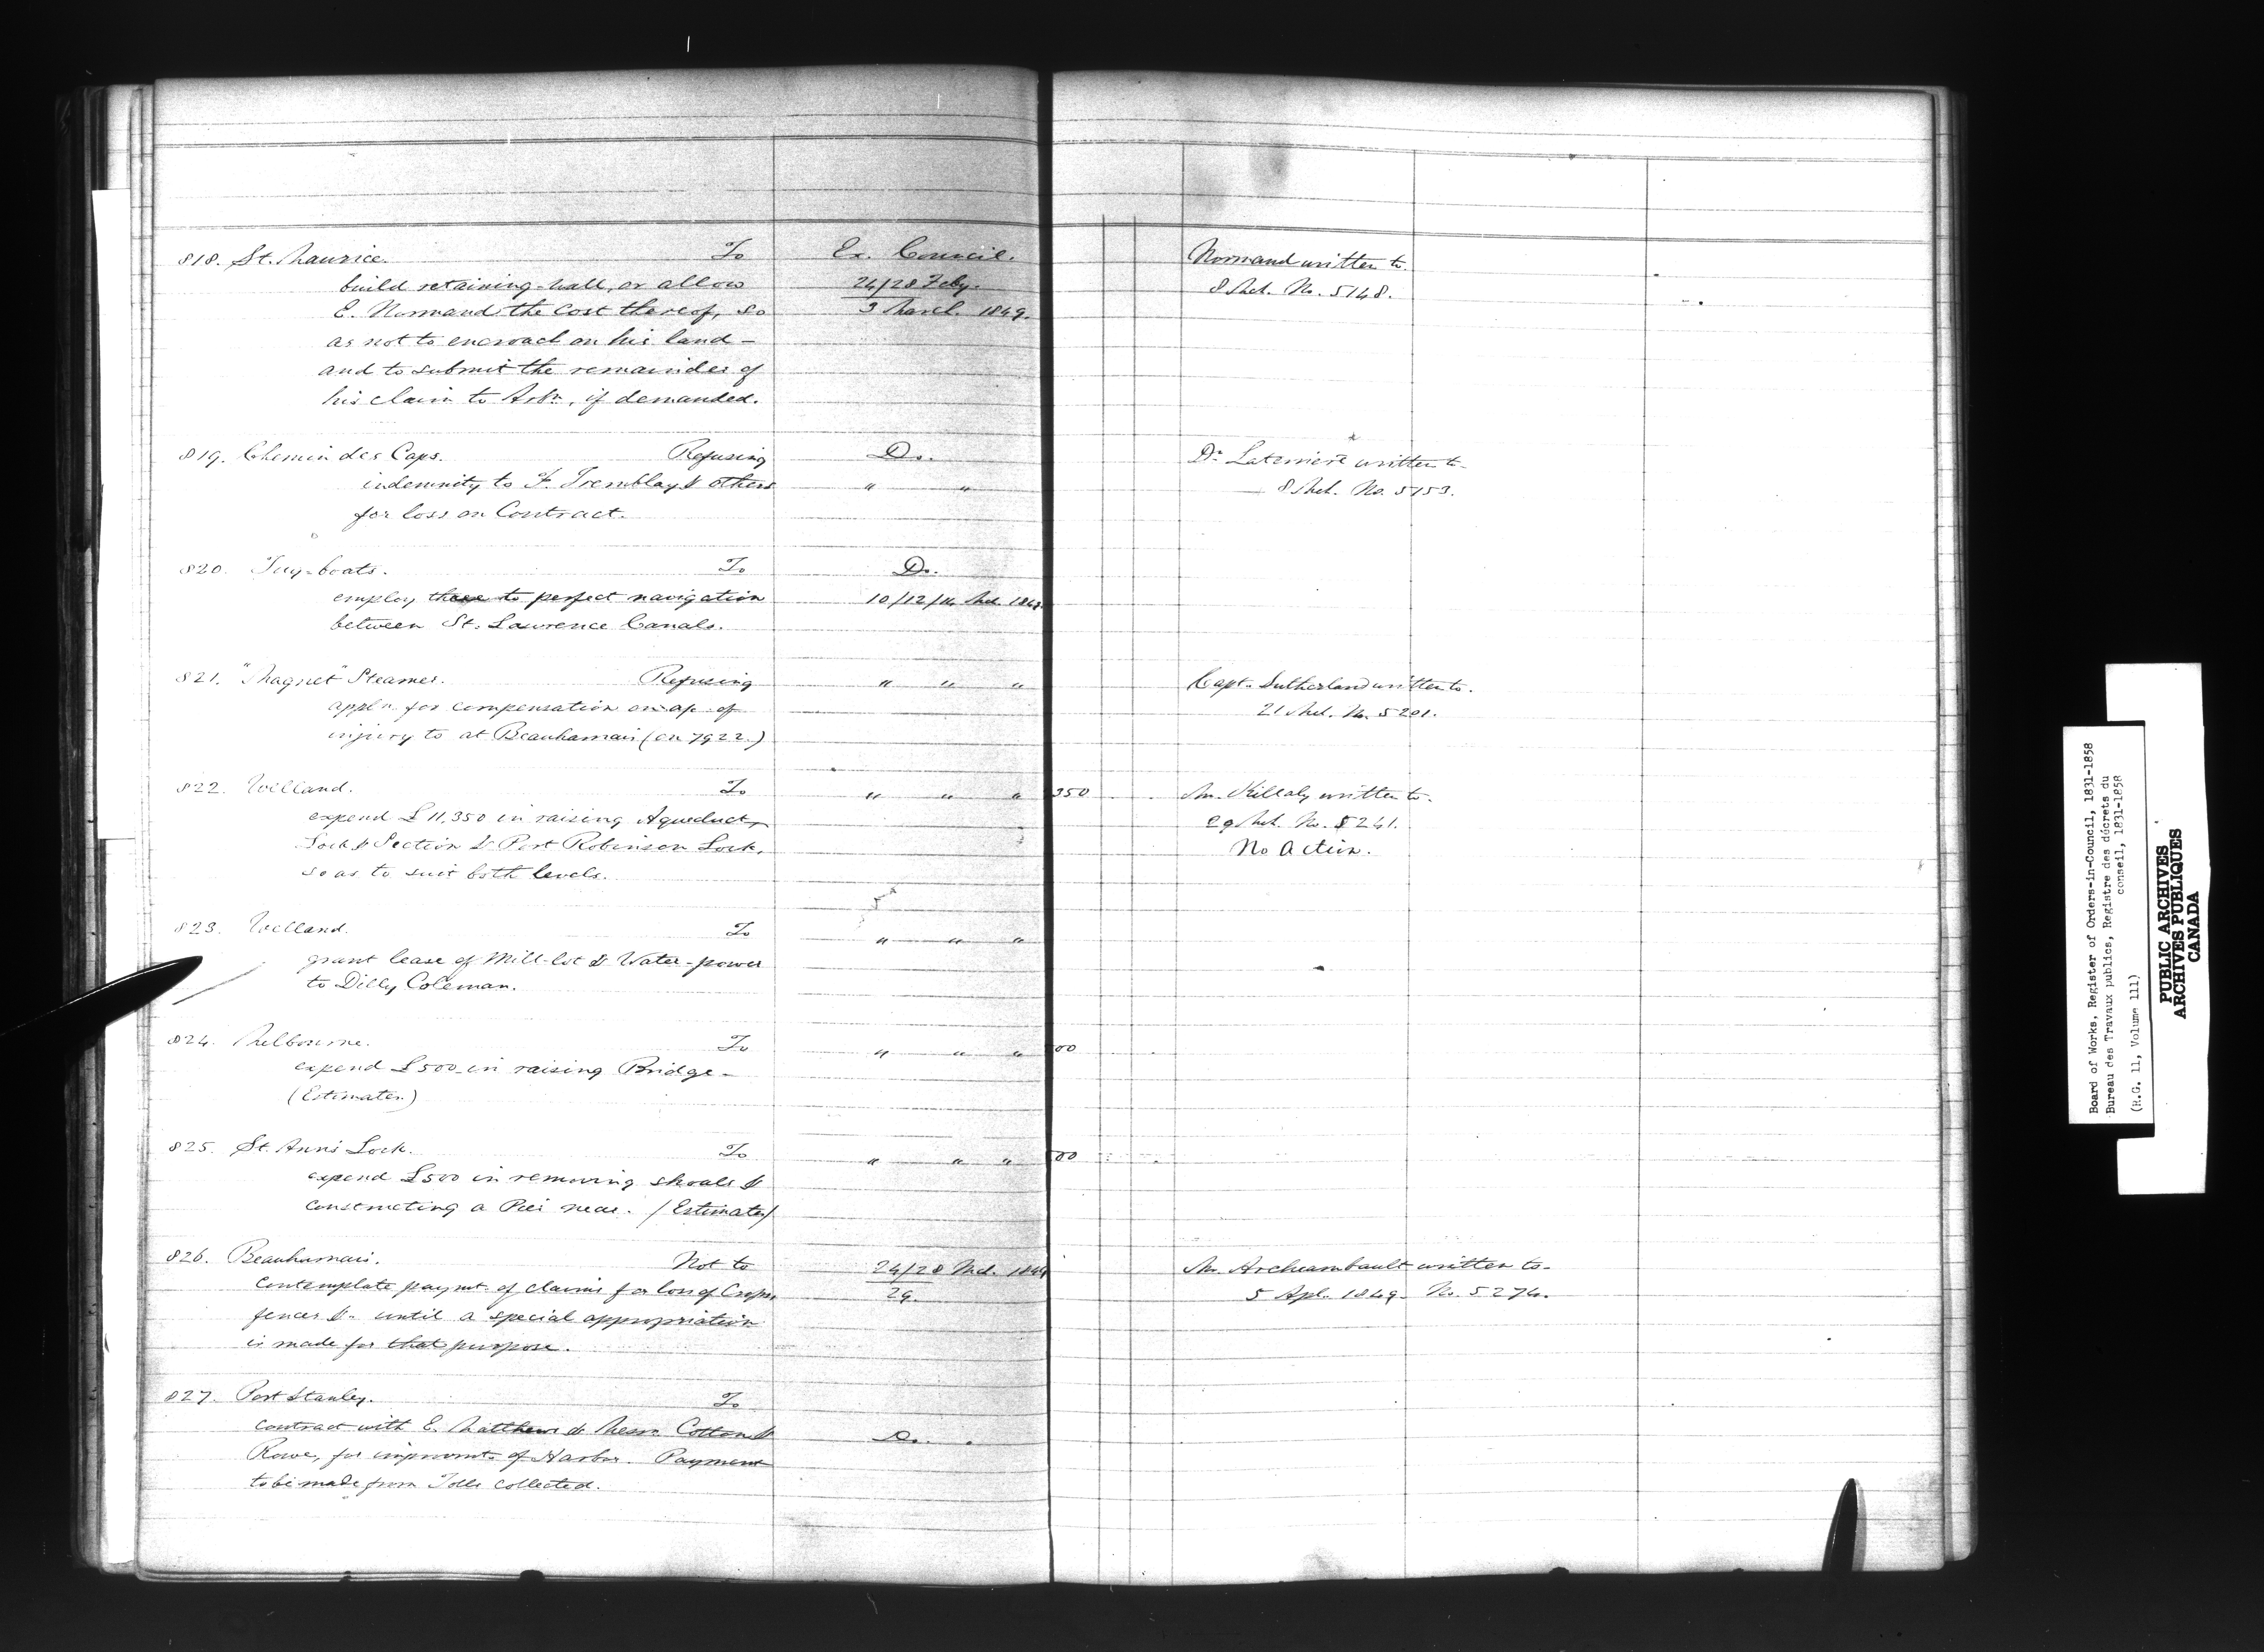 818. St. Maurice. To
build retaining-wall, or allow
E. Normand the Cost thereof, so
as not to encroach on his land -
and to submit the remainder of
his claim to Arbn, if demanded.
Ex. Council.
24/28 Feby.
3 March 1849.
Normand written to.
8 Mch. No. 5148.
819. Chemin des Caps. Refusing
indemnity to F. Tremblay & others
for loss on Contract.
Do.
" "
Dr Laterriere written to
8 Mch. No. 5153.
820. Tug-boats. To
employ these to perfect navigation
between St. Lawrence Canals.
Do.
10/12/14 Mch. 1849.
821. "Magnet" Steamer. Refusing
appln. for compensation on ac. of
injury to at Beauharnais (on 7922.)
" " "
Capt. Sutherland written to.
21 Mch. No. 5201.
822. Welland. To
expend £11,350 in raising Aqueduct,
Lock & Section & Port Robinson Lock,
so as to suit both levels.
" " " 350
Mr. Killaly written to.
29 Mch. No. 5241.
No Action.
823. Welland. To
grant lease of Mill-lot & Water-power
to Dilly Coleman.
" " "
824. Melbourne. To
expend £500 in raising Bridge -
(Estimates.)
" " " 00
825. St. Ann's Lock. To
expend £500 in removing shoals &
constructing a Pier near. (Estimates)
" " " 00
826. Beauharnais. Not to
contemplate paymt. of claims for loss of Crops,
fences &c. until a special appropriation
is made for that purpose.
24/28 Mch. 1849
29.
Mr. Archambault written to.
5 Apl. 1849. No. 5274.
827. Port Stanley. To
contract with E. Matthews & Messrs. Cotton &
Rowe, for improvmt. of Harbor. Payment
to be made from Tolls collected.
Do.
Board of Works, Register of Orders-in-Council, 1831-1858
Bureau des Travaux publics, Registre des décrets du
conseil, 1831-1858
(R.G. 11, Volume 111)
PUBLIC ARCHIVES
ARCHIVES PUBLIQUES
CANADA